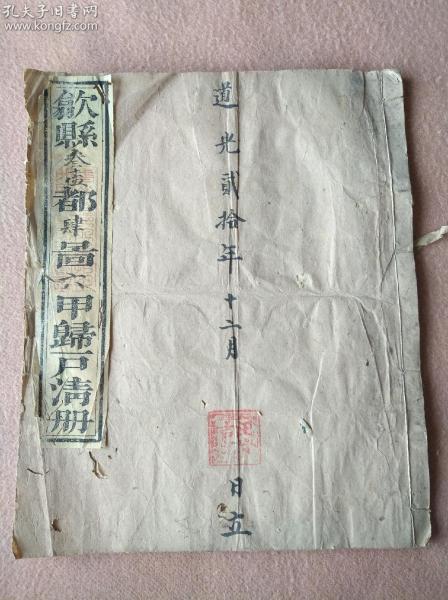 孔夫子旧书网
www.kongfz.com
歙縣叁壹都肆啚六甲歸戶清册
道光貳拾年十二月 日立